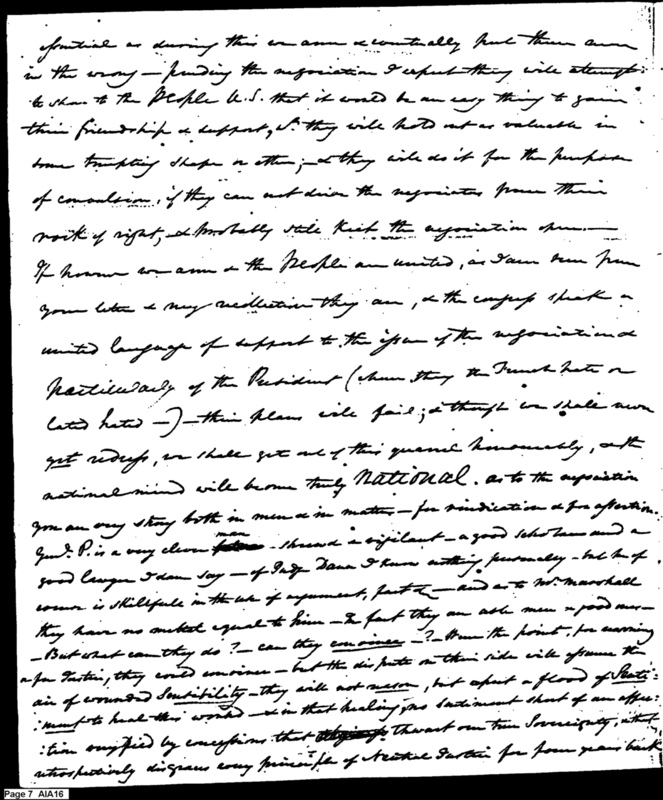 essential as during this we arm & eventually put them
in the wrong — pending the negociation I expect they will attempt
to shew to the People U.S. that it would be an easy thing to gain
their friendship & support, & they will hold out as valuable in
some tempting shape or other; & they will do it for the purpose
of convulsion, if they can not drive the negociators from their
rock of right, & probably still keep the negociation open. —
If however we arm & the People are united, as I am sure from
your letter & my recollection they are, & the congress speak a
united language of support to the issue of this negociation &
Particularly of the President (whom they the French hate or
lated hated —) — their plans will fail; & though we shall never
get redress, we shall get out of this quarrel honourably, & the
national mind will become truly National. as to the negociation
you are very strong both in men & in matter — for vindication & for assertion.
Genl. P. is a very clever man - shrewd & vigilant - a good scholar and a
good lawyer I dare say — of Judge Dana I know nothing personally - but he of
course is skillfull in the use of argument, fact &c — and as to Mr. Marshall
they have no match equal to him — In fact they are able men & good men —
— But what can they do? — can they convince — ? — the point, for
a for Justice, they could convince — but the dispute on their side will assume the
air of wounded Sensibility — they will not reason, but expect a flood of Senti-
:ment to heal this wound — & in that healing, no Sentiment short of an
:tion by concessions that thwart our true Sovereignty, & that
retrospectively disgrace every principle of Neutral Justice for four years back
Page 7 AIA16